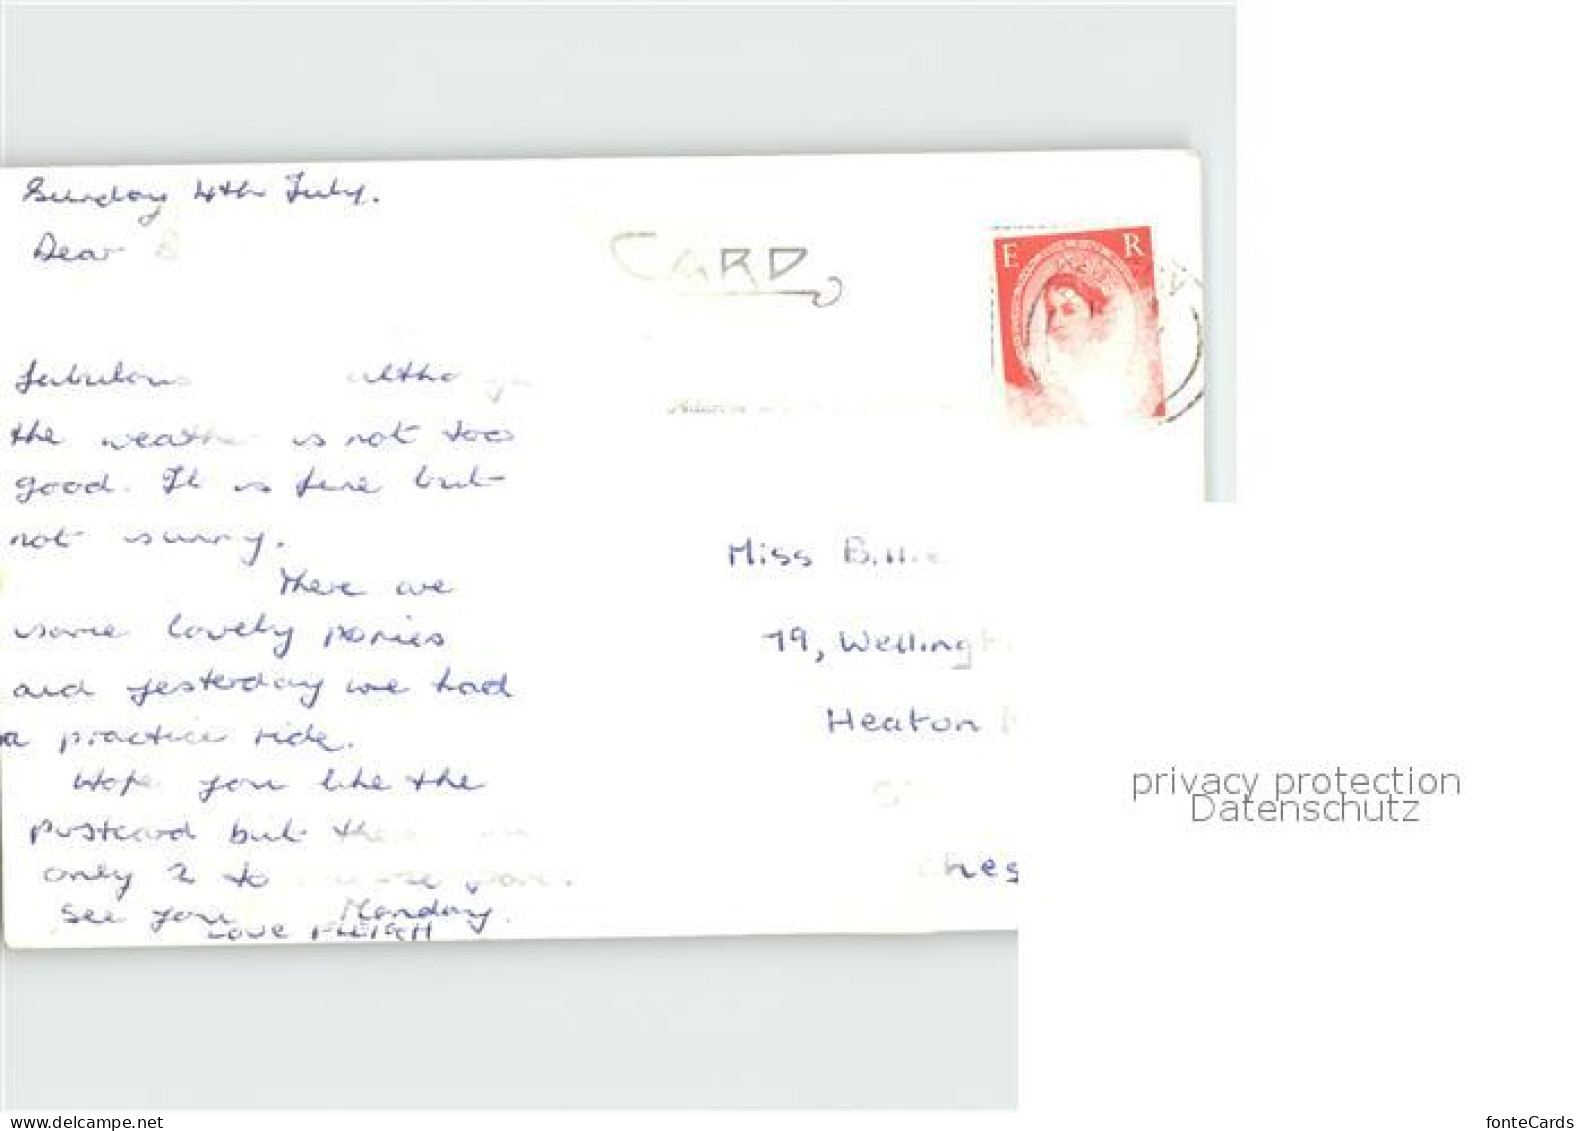 Sunday 4th July.
Dear
CARD
E R
fabulous altho
the weather is not too
good. It is fine but
not sunny.
There are
some lovely ponies
and yesterday we had
a practice ride.
Hope you like the
postcard but
only 2 to
see you Monday.
Love
Address
Miss Billie
19, Wellingt
Heaton
ches
privacy protection
Datenschutz
www.delcampe.net
fonteCards